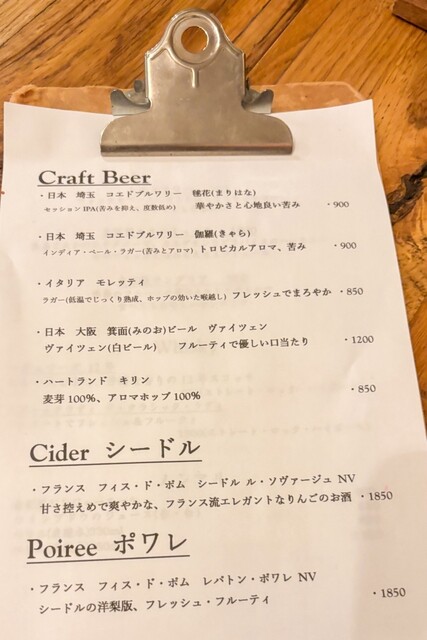 Craft Beer
・日本　埼玉　コエドブルワリー　毬花(まりはな)
セッションIPA(苦みを抑え、度数低め)　華やかさと心地良い苦み　・900
・日本　埼玉　コエドブルワリー　伽羅(きゃら)
インディア・ペール・ラガー(苦みとアロマ)　トロピカルアロマ、苦み　・900
・イタリア　モレッティ
ラガー(低温でじっくり熟成、ホップの効いた喉越し)　フレッシュでまろやか　・850
・日本　大阪　箕面(みのお)ビール　ヴァイツェン
ヴァイツェン(白ビール)　フルーティで優しい口当たり　・1200
・ハートランド　キリン
麦芽100%、アロマホップ100%　・850
Cider シードル
・フランス　フィス・ド・ポム　シードル ル・ソヴァージュ NV
甘さ控えめで爽やかな、フランス流エレガントなりんごのお酒　・1850
Poiree ポワレ
・フランス　フィス・ド・ポム　レバトン・ポワレ NV
シードルの洋梨版、フレッシュ・フルーティ　・1850